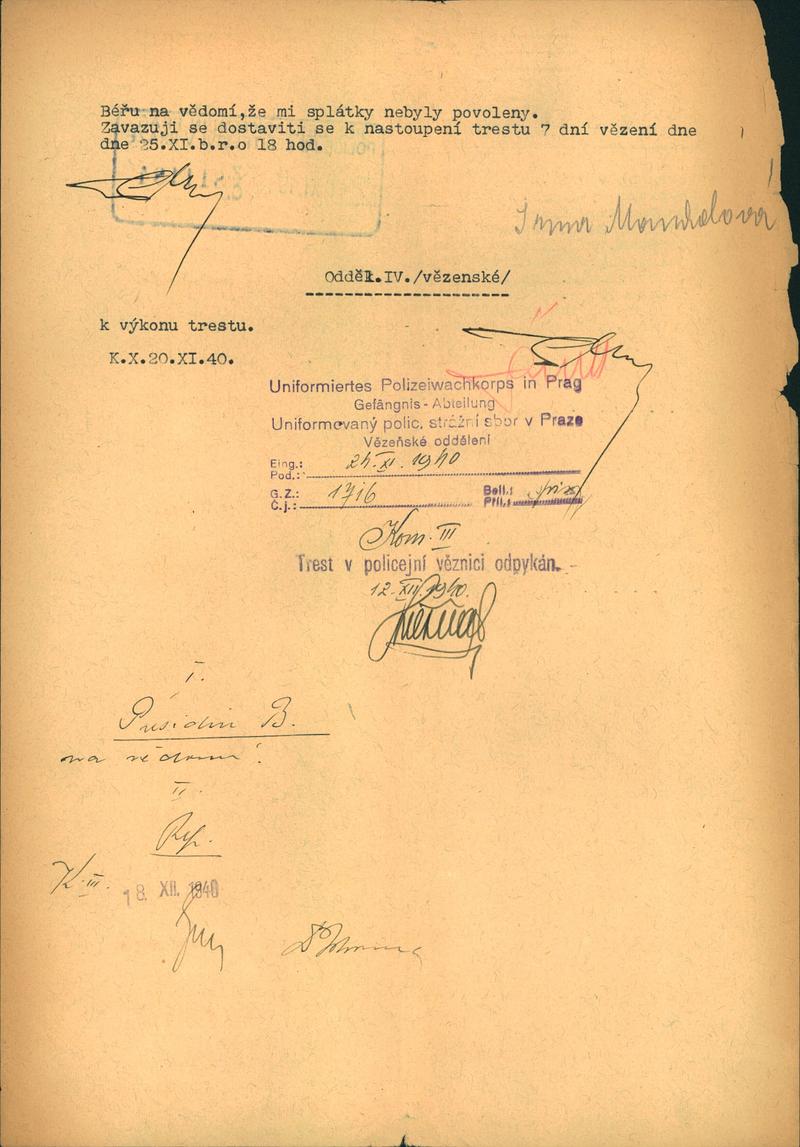 Béřu na vědomí,že mi splátky nebyly povoleny.
Zavazuji se dostaviti se k nastoupení trestu 7 dní vězení dne
dne 25.XI.b.r.o 18 hod.
Irma Mandelová
Odděl.IV./vězenské/
k výkonu trestu.
K.X.20.XI.40.
Uniformiertes Polizeiwachkorps in Prag
Gefängnis - Abteilung
Uniformovaný polic. strážní sbor v Praze
Vězeňské oddělení
Eing.:
Pod.: 24. XI. 1940
G.Z.:
Č.j.: 1716
Beil.:
Příl.:
Kom. III
Trest v policejní věznici odpykán.
12. XII. 1940.
I.
Presidiu B.
na vědomí.
II.
Rep.
K. III. 18. XII. 1940